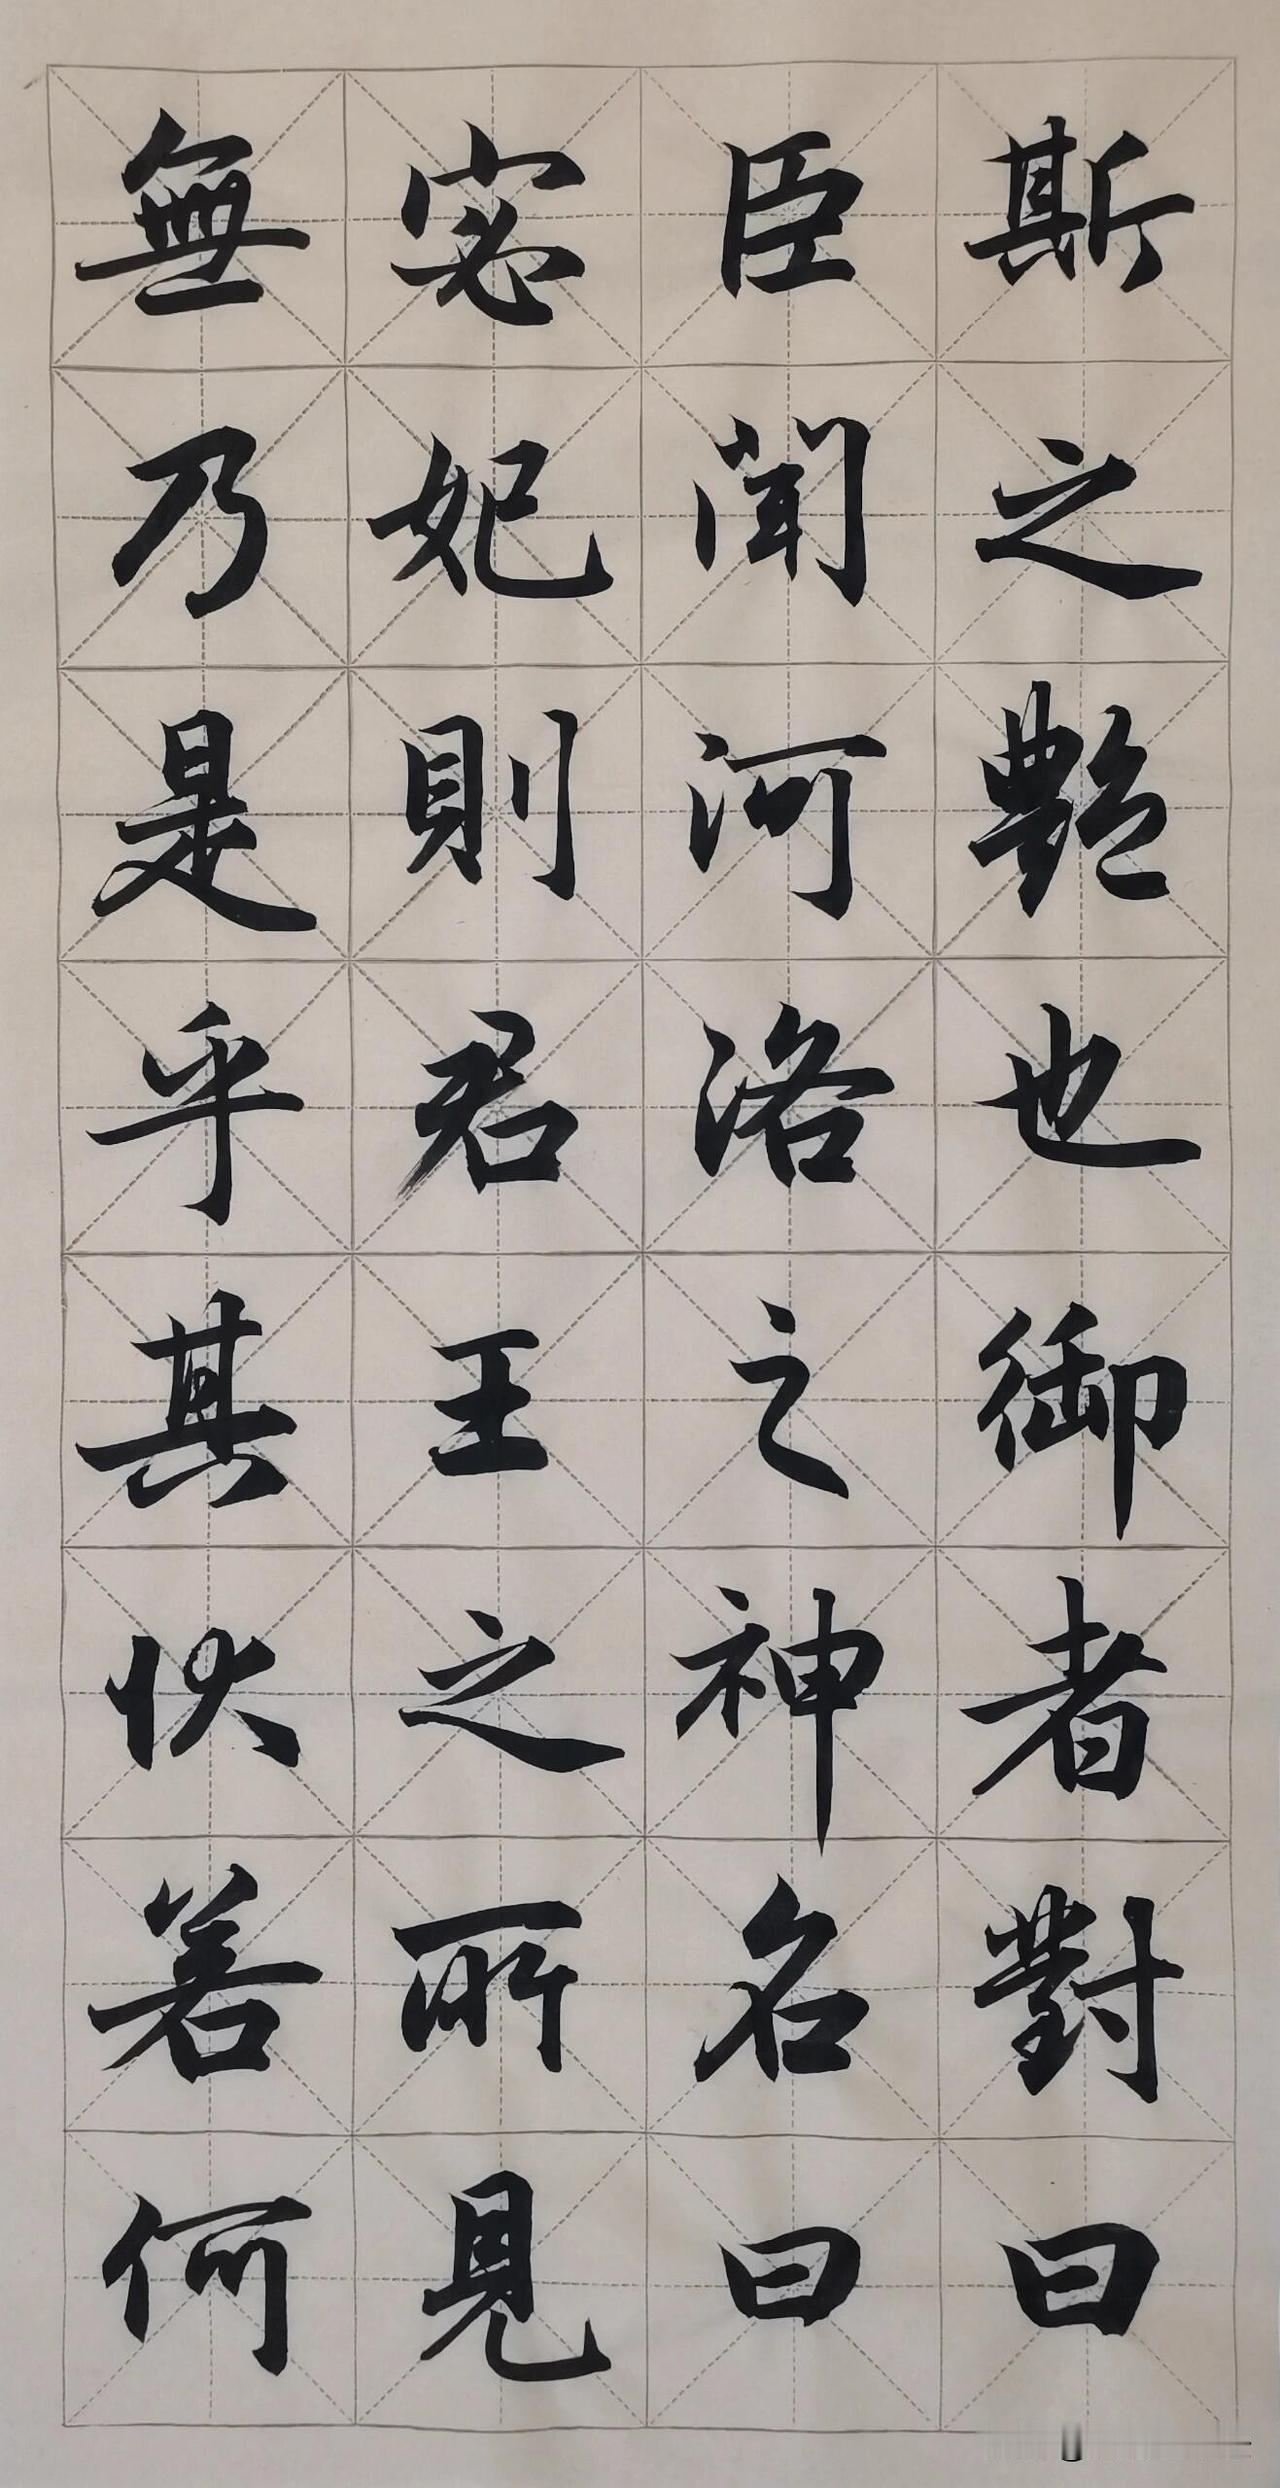 斯之艷也御者對曰
臣聞河洛之神名曰
宓妃則君王之所見
無乃是乎其狀若何